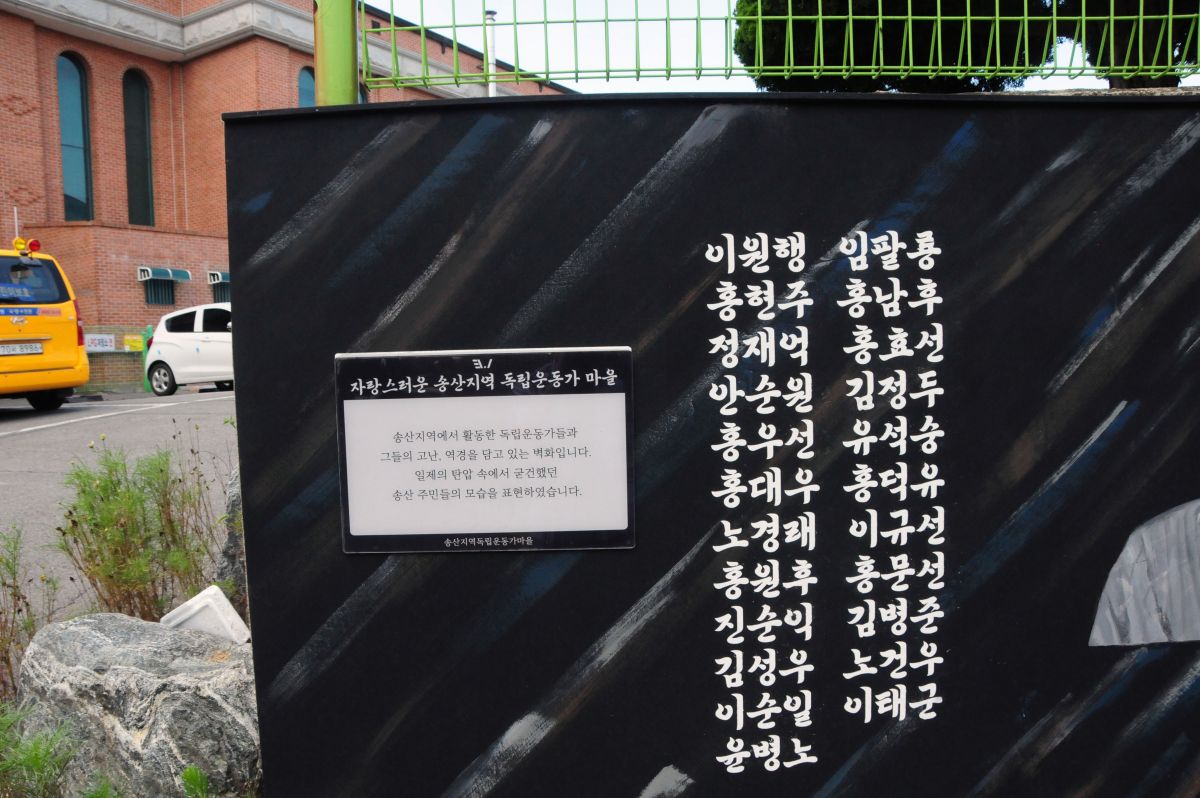 3.1
자랑스러운 송산지역 독립운동가 마을
송산지역에서 활동한 독립운동가들과
그들의 고난, 역경을 담고 있는 벽화입니다.
일제의 탄압 속에서 굳건했던
송산 주민들의 모습을 표현하였습니다.
송산지역독립운동가마을
이원행 임팔룡
홍현주 홍남후
정재억 홍효선
안순원 김정두
홍우선 유석숭
홍대우 홍덕유
노경래 이규선
홍원후 홍문선
진순익 김병준
김성우 노건우
이순일 이태군
윤병노
8986